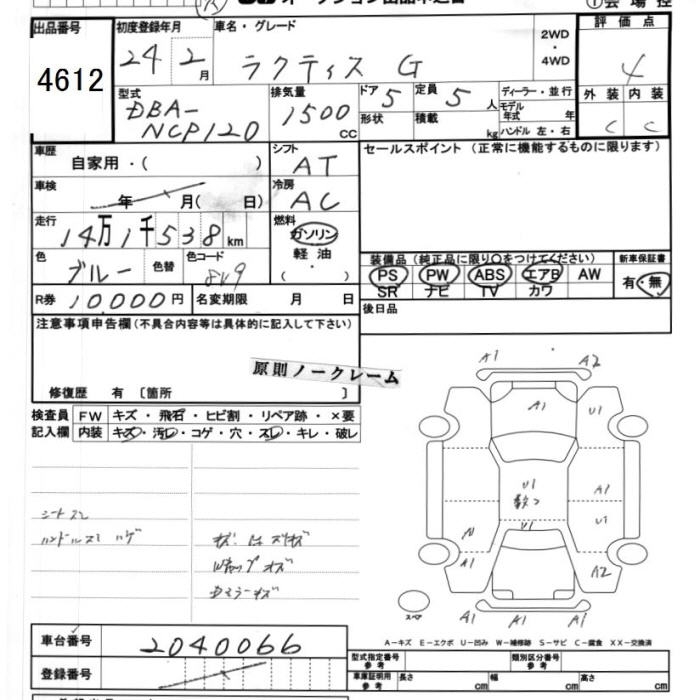 出品番号
4612
初度登録年月
24年2月
車名・グレード
ラクティス G
2WD
・
4WD
評価点
4
外装 内装
C C
型式
DBA-
NCP120
排気量
1500
CC
ドア 5
形状
定員 5 人
積載 kg
ディーラー・並行
モデル
年式 年
ハンドル 左・右
車歴
自家用・( )
シフト
AT
セールスポイント (正常に機能するものに限ります)
車検
年 月( 日)
冷房
AC
走行
14万1千538km
燃料
ガソリン
軽油
( ・ )
装備品 (純正品に限り○をつけてください)
新車保証書
PS PW ABS エアB AW
有・無
SR ナビ TV カワ
色
ブルー
色替
色コード
8V9
R券 10,000円
名変期限 月 日
後日品
注意事項申告欄 (不具合内容等は具体的に記入して下さい)
原則ノークレーム
修復歴 有 〔箇所 〕
検査員
記入欄
FW キズ・飛石・ヒビ割・リペア跡・×要
内装 キズ・汚レ・コゲ・穴・スレ・キレ・破レ
シートスレ
ハンドルスレ ハゲ
A1 A2
A1 U1
U1 A1
U1
U1
A1 A2
A1 A1 A1
スペア
A-キズ E-エクボ U-凹み W-補修跡 S-サビ C-腐食 XX-交換済
車台番号
2040066
登録番号
型式指定番号
参考
類別区分番号
参考
車庫証明用
参考
長さ cm
幅 cm
高さ cm